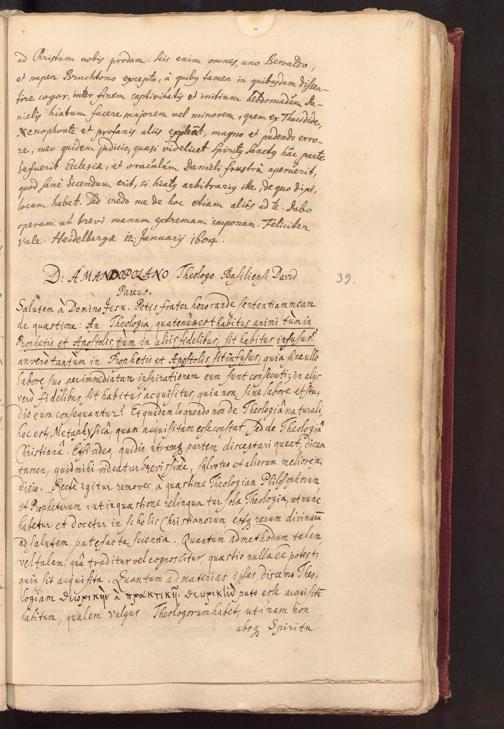 ad Christum nobis prodam. Scis enim omnes, uno Beroaldo,
et nuper Bruchtono excepto, à quibq tamen in quibusdam dissen-
tire cogor, inter finem captivitatis et initium hebdomadum Da-
nielis hiatum facere majorem vel minorem, quem ex Thucidide,
Xenophonte et profanis aliis explent, magno et pudendo erro-
re, meo quidem judicio, quasi videlicet Spiritus Sanctus hac parte
defuerit Ecclesiæ, et oraculum Danieli frustrà aperuerit,
quod sanè dicendum erit, si hiatq arbitrariq ille, de quo dixi,
locum habet. Sed credo me de hoc etiam aliàs ad te. Dabo
operam ut brevi manum extremam imponam. Feliciter
vale. Heidelbergæ 12. Januarij 1604.
D. AMANDO POLANO Theologo Basiliensi David
Pareus.
39.
Salutem à Domino Jesu. Petis frater honorande sententiam meam
de quæstione: An Theologia, quatenus est habitus animi tùm in
Prophetis et Apostolis tùm in aliis fidelibus, sit habitus infusus?
an verò tantùm in Prophetis et Apostolis sit infusus, quia sine ullo
labore suo per immediatam inspirationem eum sunt consecuti; in aliis
verò fidelibus sit habitus acquisitus, quia non sine labore et stu-
dio eum consequantur? Et quidem loquendo non de Theologiâ naturali,
hoc est, Metaphysicâ, quam acquisitam esse constat, sed de Theologiâ
Christiana. Etsi video, quid in utramq partem disceptari queat, dicam
tamen, quid mihi videatur brevissimè, salvo tuo et aliorum meliorem
dicere. Rectè igitur removes à quæstione Theologiam Philosophorum
et Prophetarum, ut in quæstione relinquatur sola Theologia, ut nunc
habetur et docetur in scholis Christianorum estq rerum divinarum
ad salutem patefacta scientia. Quantum ad methodum talem
vel talem, quâ traditur vel cognoscitur, quæstio nulla eê potest,
quin sit acquisita. Quantum ad materias ipsas, discerno Theo-
logiam θεωρικὴν à πρακτικῇ. θεωρικὴν puto esse acquisitū
habitum, qualem vulgus Theologorum habet, utinam non
absq Spiritu